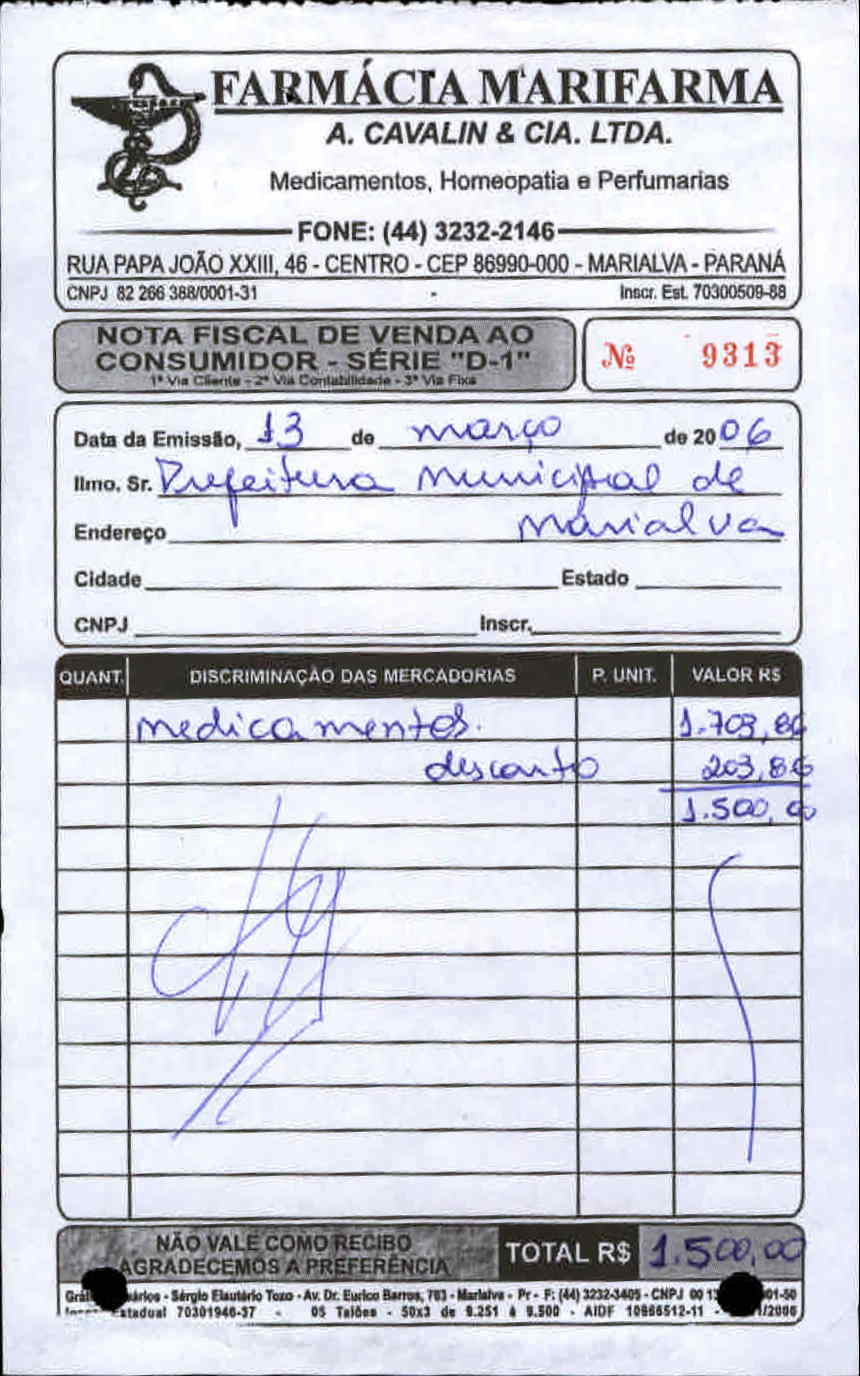 FARMÁCIA MARIFARMA
A. CAVALIN & CIA. LTDA.
Medicamentos, Homeopatia e Perfumarias
FONE: (44) 3232-2146
RUA PAPA JOÃO XXIII, 46 - CENTRO - CEP 86990-000 - MARIALVA - PARANÁ
CNPJ 82 266 388/0001-31 Inscr. Est. 70300509-88
NOTA FISCAL DE VENDA AO
CONSUMIDOR - SÉRIE "D-1"
1ª Via Cliente - 2ª Via Contabilidade - 3ª Via Fixa
Nº 9313
Data da Emissão, 13 de março de 2006
Ilmo. Sr. Prefeitura Municipal de
Marialva
Endereço
Cidade Estado
CNPJ Inscr.
QUANT. DISCRIMINAÇÃO DAS MERCADORIAS P. UNIT. VALOR R$
medicamentos. 1.703,86
desconto 203,86
1.500,00
NÃO VALE COMO RECIBO
AGRADECEMOS A PREFERÊNCIA
TOTAL R$ 1.500,00
Sérgio Elautério Tozo - Av. Dr. Eurico Barros, 763 - Marialva - Pr - F: (44) 3232-3405 - CNPJ 00
70301946-37 - 05 Talões - 50x3 de 9.251 á 9.500 - AIDF 10966512-11 - /2006